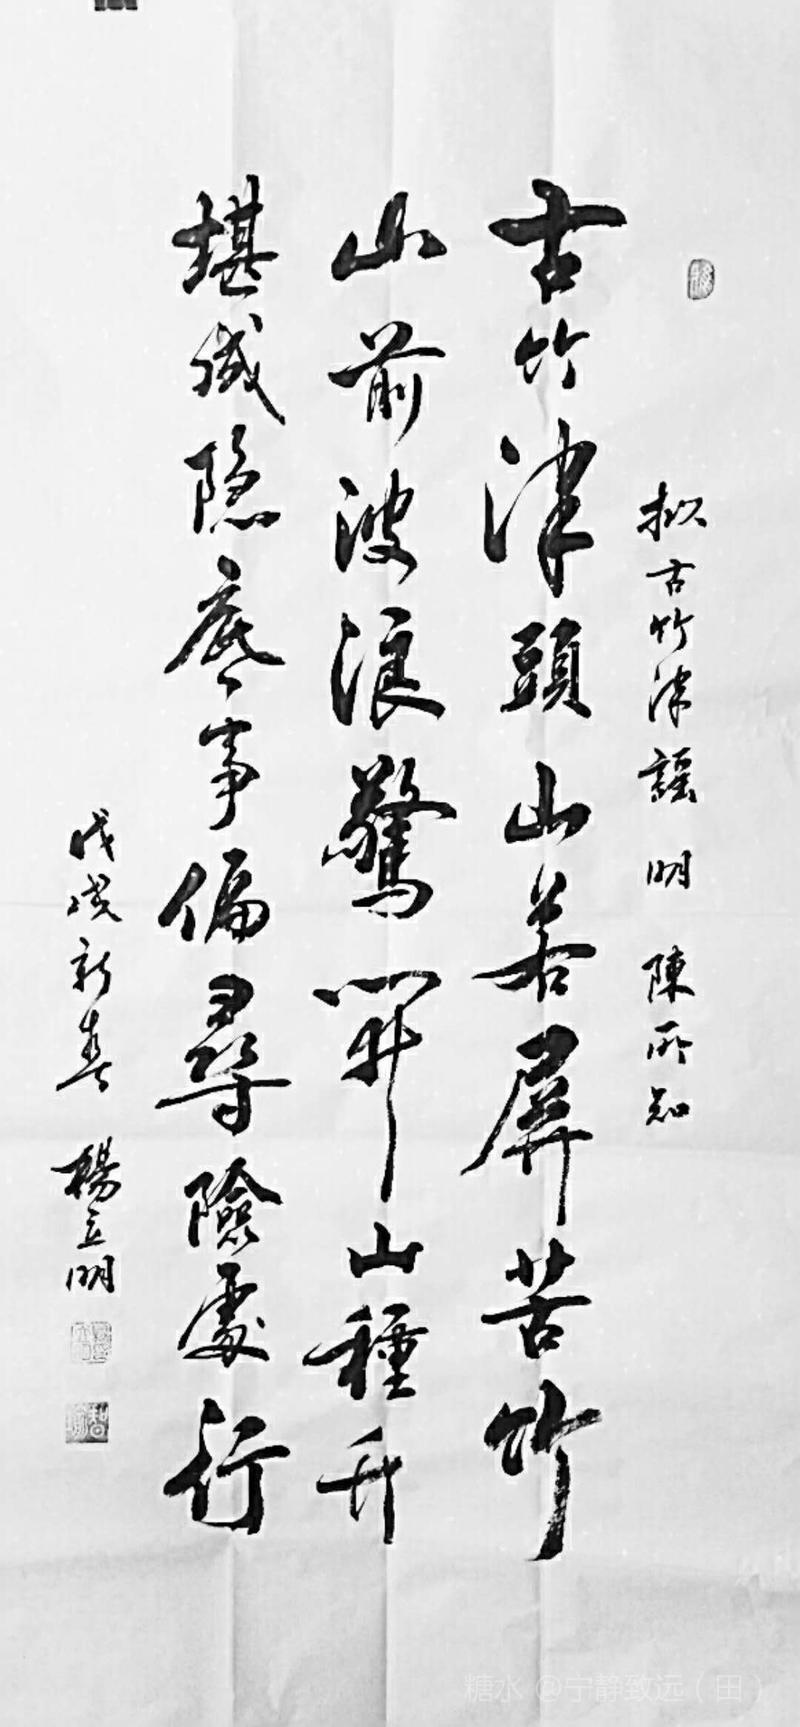 拟古竹津謡 明 陳所知
古竹津頭山若屏苦竹
山前波浪驚開山種
堪隐底事偏尋險處行
戊戌新春 楊立明
糖水 @宁静致远（田）